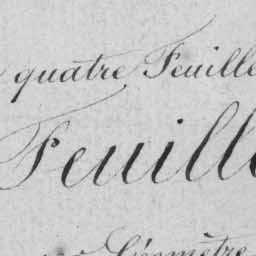 quatre Feuille
Feuille
Géomètre